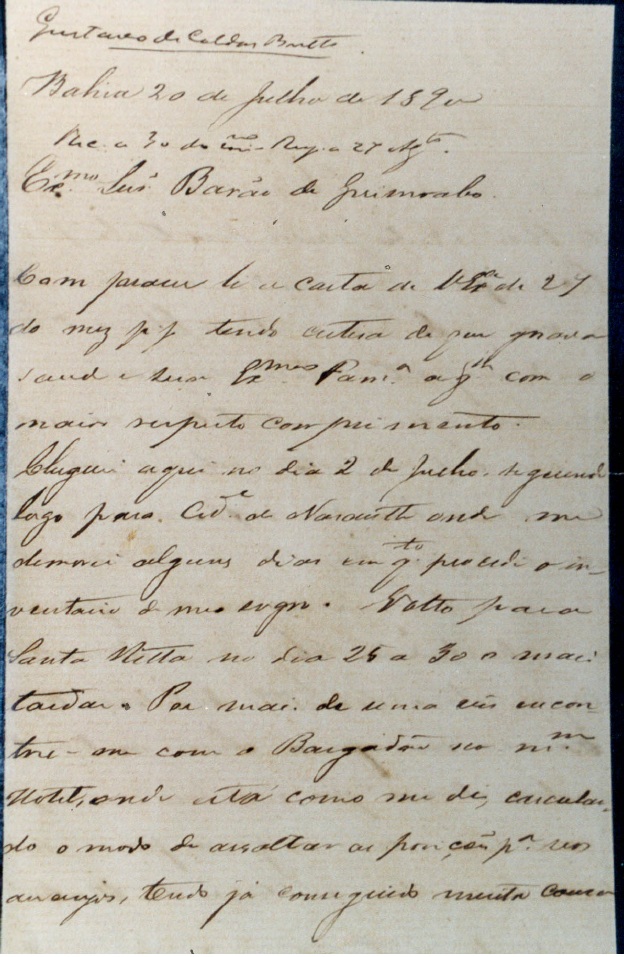 Gustavo de Caldas Britto
Bahia 20 de Julho de 1890
Rec. a 30 do mmo Resp. a 27 Agto.
Exmo Snr. Barão de Geremoabo.
Com prazer li a carta de VExa de 27
do mez p.p. tendo certesa de que gosava
saude e sua Exmas Fama a qm com o
maior respeito comprimento.
Cheguei aqui no dia 2 de Julho, seguindo
logo para Cide de Nazareth onde me
demorei alguns dias em qto procedi o in-
ventario de meo sogro. Volto para
Santa Ritta no dia 25 a 30 o mais
tardar. Por mais de uma vês encon
trei-me com o no mmo
Hotel, onde está como me diz,
do o modo de assaltar as posições pa seos
arranjos, tendo já conseguido muita cousa